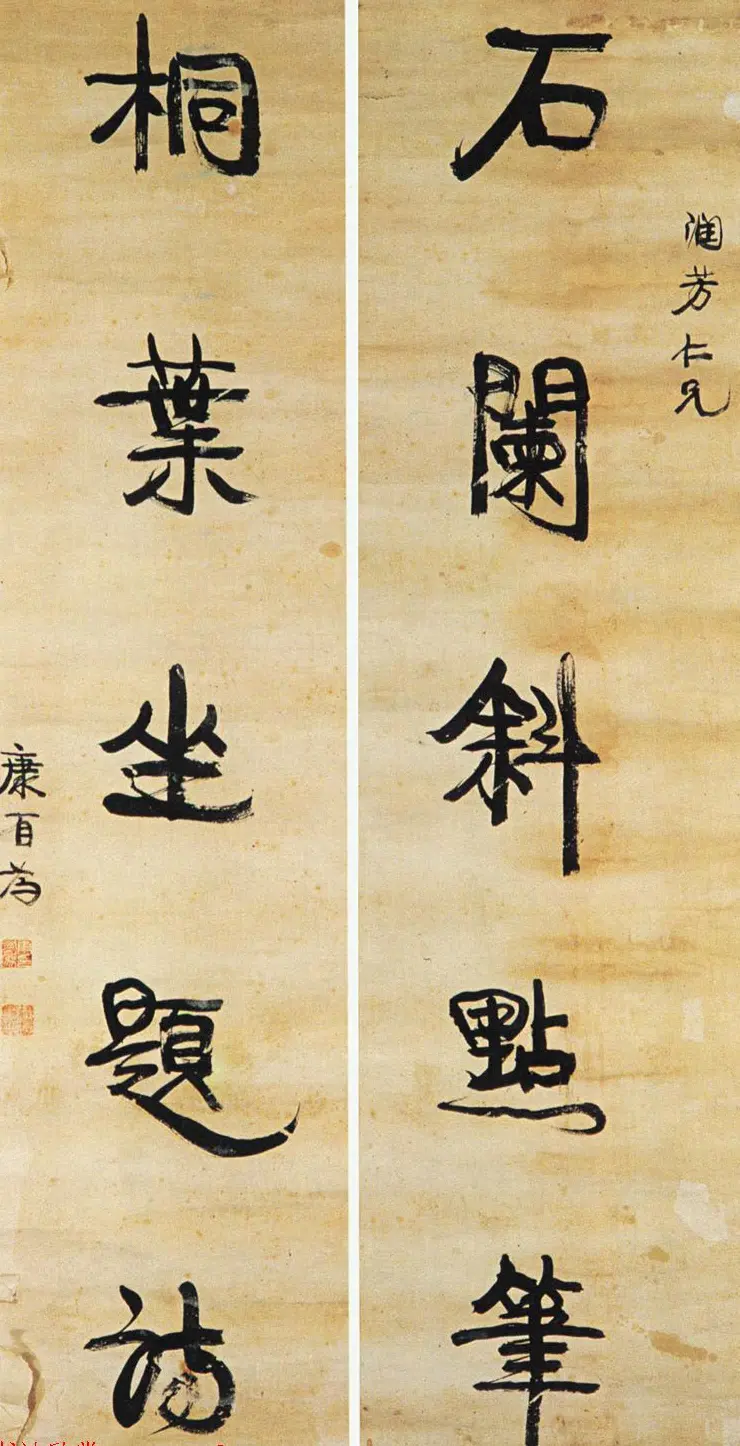 潤芳仁兄
石闌斜點筆
桐葉坐題詩
康有為